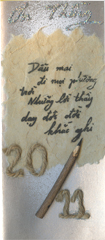 Ơn Thầy
Dẫu mai
đi mọi phương
trời
Những lời thầy
dạy đời đời
khắc ghi
20
11